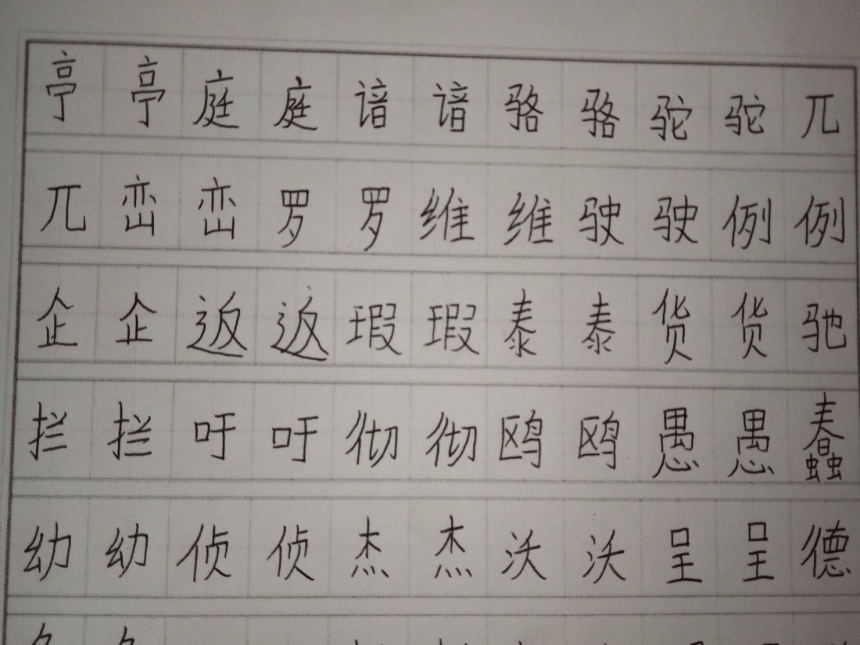 亭亭庭庭谙谙骆骆驼驼兀
兀峦峦罗罗维维驶驶例例
企企返返瑕瑕泰泰货货驰
拦拦吁吁彻彻鸥鸥愚愚蠢
幼幼侦侦杰杰沃沃呈呈德